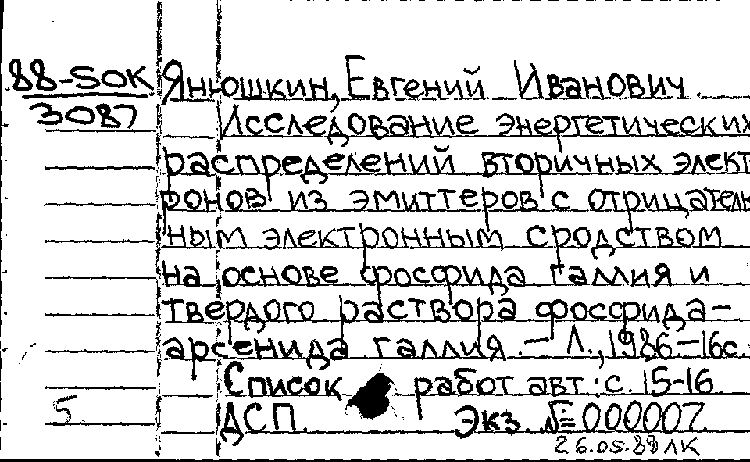 88-5ОК Янюшкин, Евгений Иванович.
3087 Исследование энергетических
распределений вторичных элект
ронов из эмиттеров с отрицатель
ным электронным сродством
на основе фосфида галлия и
твердого раствора фосфида-
арсенида галлия. - Л., 1986.-16с.
Список работ авт.: с. 15-16
5 ДСП. Экз. №000007.
26.05.88 ЛК